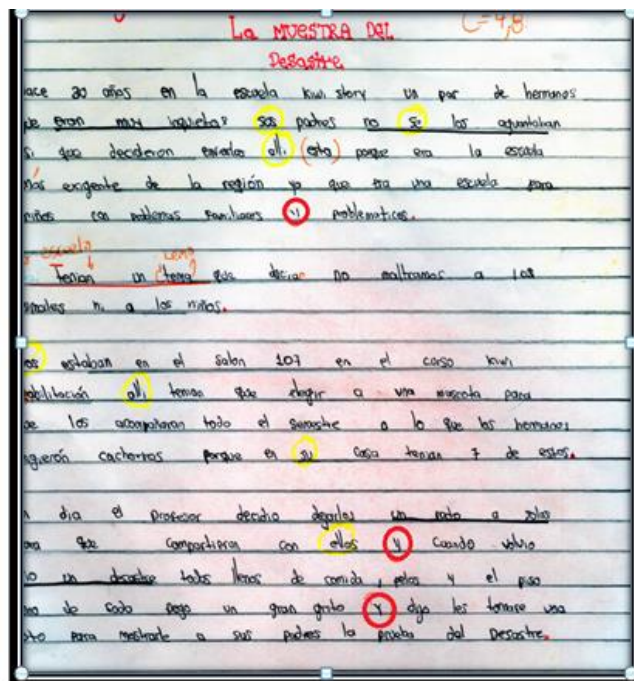 La MUESTRA DEL
C=4,8
Desastre
ace 20 años en la escuela kiwi story un par de hermanos
ue eran muy inquietos sus padres no se los aguantaban
si que decidieron enviarlos alli (esta) porque era la escuela
más exigente de la región ya que era una escuela para
niños con problemas familiares y problematicos.
escuela
Lema
Tenian un (tema) que decia no maltramos a los
nimales ni a los niños.
os estaban en el Salon 107 en el curso kiwi
abilitación alli tenian que elegir a una mascota para
ue los acompañaran todo el semestre a lo que los hermanos
igierón cachorros porque en su casa tenian 7 de estos.
n dia el profesor decidio dejarlos un rato a solas
ara que compartieran con ellos y cuando volvio
io un desastre todos llenos de comida, pelos y el piso
de todo pego un gran grito y dijo les tomare una
oto para mostrarle a sus padres la prueba del Desastre.